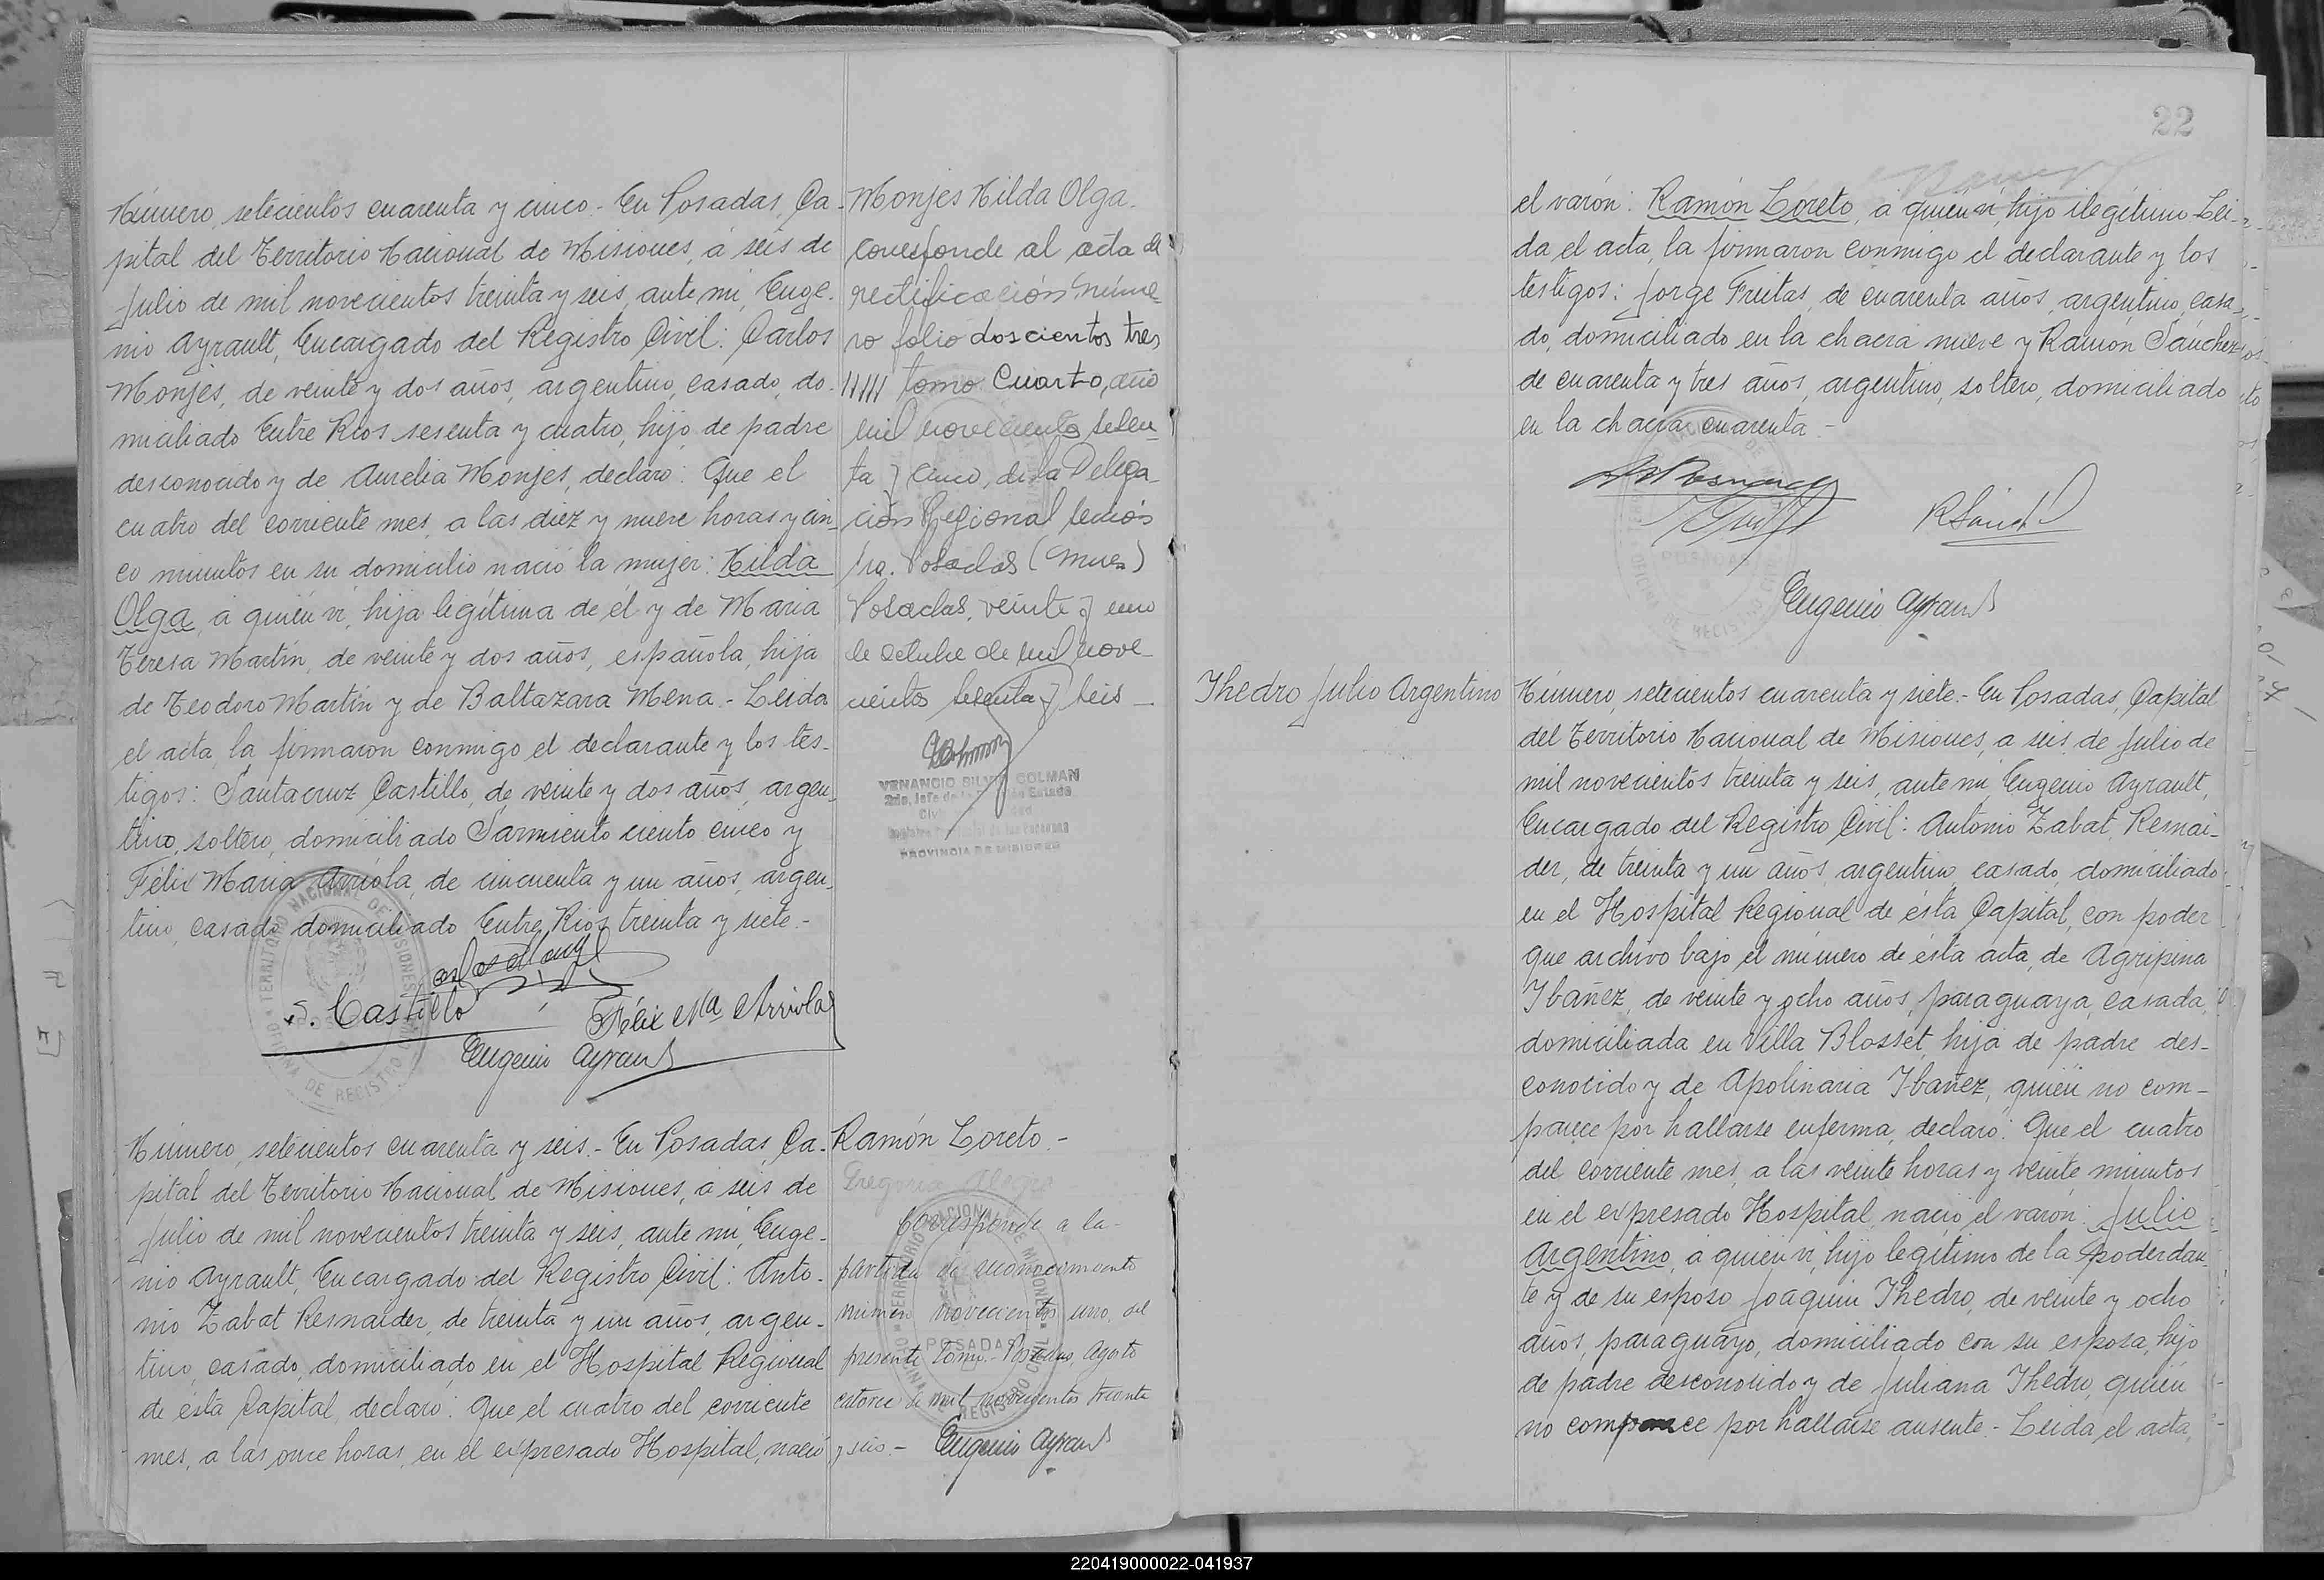 Número, setecientos cuarenta y cinco.- En Posadas, Ca-
pital del Territorio Nacional de Misiones, a seis de
Julio de mil novecientos treinta y seis, ante mi, Euge-
nio Ayrault, Encargado del Registro Civil: Carlos
Monjes, de veinte y dos años, argentino, casado, do-
miciliado Entre Rios sesenta y cuatro, hijo de padre
desconocido y de Aurelia Monjes, declaró: Que el
cuatro del corriente mes, a las diez y nueve horas y cin-
co minutos en su domicilio nació la mujer: Hilda
Olga, a quién vi, hija legítima de él y de Maria
Teresa Martín, de veinte y dos años, española, hija
de Teodoro Martín y de Baltazara Mena.- Leida
el acta, la firmaron conmigo el declarante y los tes-
tigos: Santacruz Castillo, de veinte y dos años, argen-
tino, soltero, domiciliado Sarmiento ciento cinco y
Félix Maria Arriola, de cincuenta y un años, argen-
tino, casado domiciliado Entre Rios treinta y siete.-
S. Castillo
Félix Ma Arriola
Eugenio Ayrault
Monjes Hilda Olga.
Corresponde al acta de
rectificación núme
ro folio doscientos tres
///// tomo Cuarto, año
mil novecientos seten-
ta y cinco, de la Delega-
ción Regional
1ra. Posadas (Mnes)
Posadas, veinte y uno
de octubre de mil nove-
cientos setenta y seis -
VENANCIO SILVIO COLMAN
PROVINCIA DE MISIONES
TERRITORIO NACIONAL DE MISIONES
OFICINA DE REGISTRO CIVIL
Número, setecientos cuarenta y seis.- En Posadas, Ca-
pital del Territorio Nacional de Misiones, a seis de
Julio de mil novecientos treinta y seis, ante mi, Euge-
nio Ayrault, Encargado del Registro Civil: Anto-
nio Zabat Resnaider, de treinta y un años, argen-
tino, casado, domiciliado en el Hospital Regional
de ésta Capital, declaró: Que el cuatro del corriente
mes, a las once horas, en el expresado Hospital, nació
Ramón Loreto.-
Corresponde a la
partida de reconocimiento
número novecientos uno, del
presente tomo.- Posadas, Agosto
catorce de mil novecientos treinta
y seis.- Eugenio Ayrault
TERRITORIO NACIONAL DE MISIONES
POSADAS
OFICINA DE REGISTRO CIVIL
22
el varón: Ramón Loreto, a quién vi, hijo ilegítimo.- Lei-
da el acta, la firmaron conmigo el declarante y los
testigos: Jorge Fruitas, de cuarenta años, argentino, casa-
do, domiciliado en la chacra nueve y Ramón Sánchez
de cuarenta y tres años, argentino, soltero, domiciliado
en la chacra cuarenta.-
Eugenio Ayrault
Thedro Julio Argentino
Número, setecientos cuarenta y siete.- En Posadas, Capital
del Territorio Nacional de Misiones, a seis de Julio de
mil novecientos treinta y seis, ante mi, Eugenio Ayrault,
Encargado del Registro Civil: Antonio Zabat, Resnai-
der, de treinta y un años, argentino casado, domiciliado
en el Hospital Regional de ésta Capital, con poder
que archivo bajo el número de ésta acta, de Agripina
Ibañez, de veinte y ocho años, paraguaya, casada,
domiciliada en Villa Blosset, hija de padre des-
conocido y de Apolinaria Ibañez, quién no com-
parece por hallarse enferma, declaró: Que el cuatro
del corriente mes, a las veinte horas y veinte minutos
en el expresado Hospital, nació el varón: Julio
Argentino, a quién vi, hijo legítimo de la poderdan-
te y de su esposo Joaquin Thedro, de veinte y ocho
años, paraguayo, domiciliado con su esposa, hijo
de padre desconocido y de Juliana Thedro, quién
no comparece por hallarse ausente.- Leida el acta,
220419000022-041937